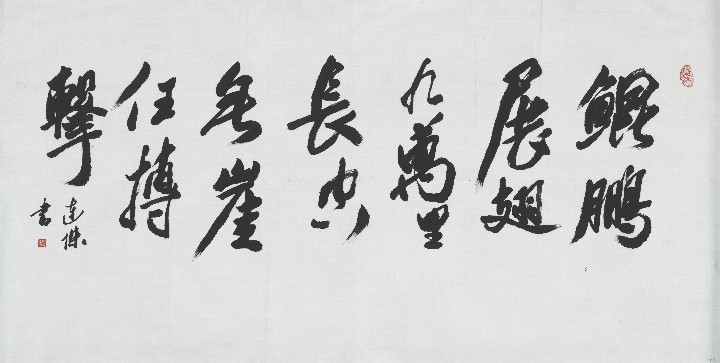 鯤鵬
展翅
九萬里
長空
無崖
任搏
擊
連傑
書